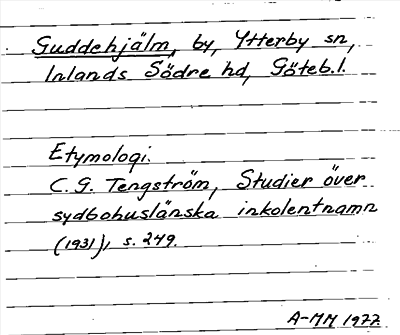 Guddehjälm, by, Ytterby sn,
Inlands Södre hd, Göteb.l.
Etymologi.
C. G. Tengström, Studier över
sydbohuslänska inkolentnamn
(1931), s. 249.
A-MM 1977